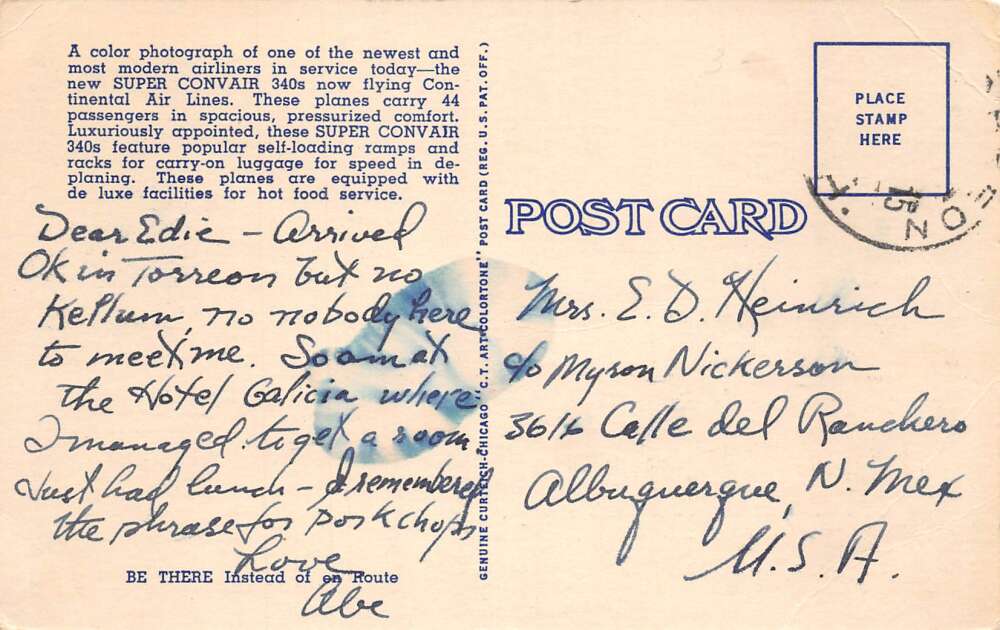 A color photograph of one of the newest and
most modern airliners in service today—the
new SUPER CONVAIR 340s now flying Con-
tinental Air Lines. These planes carry 44
passengers in spacious, pressurized comfort.
Luxuriously appointed, these SUPER CONVAIR
340s feature popular self-loading ramps and
racks for carry-on luggage for speed in de-
planing. These planes are equipped with
de luxe facilities for hot food service.
Dear Edie – Arrived
OK in Torreon but no
Kellum, no nobody here
to meet me. So am at
the Hotel Galicia where
I managed to get a room
Just had lunch – I remembered
the phrase for pork chops
Love
Abe
BE THERE Instead of en Route
GENUINE CURTEICH-CHICAGO "C.T. ART-COLORTONE" POST CARD (REG. U.S. PAT. OFF.)
PLACE
STAMP
HERE
POST CARD
Mrs. E. D. Heinrich
c/o Myron Nickerson
3616 Calle del Ranchero
Albuquerque, N. Mex
U.S.A.